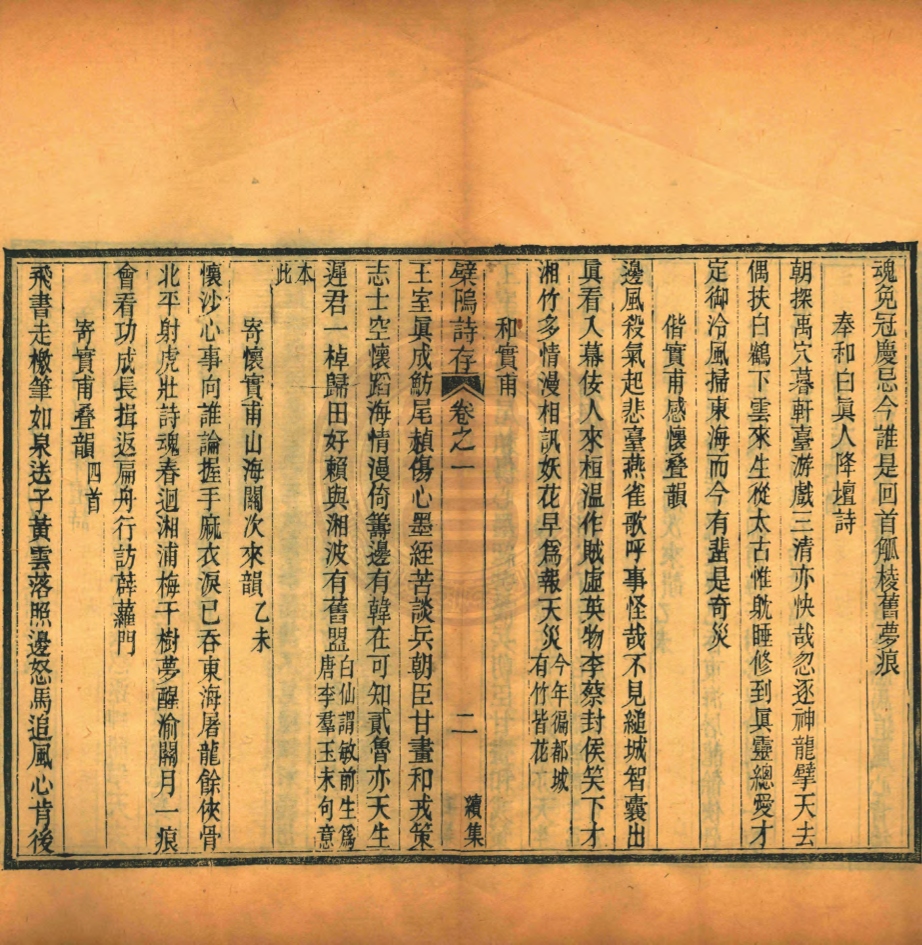 魂免冠慶忌今誰是回首觚棱舊夢痕
奉和白眞人降壇詩
朝探禹穴暮軒臺游戲三清亦快哉忽逐神龍擘天去
偶扶白鶴下雲來生從太古惟躭睡修到眞靈總愛才
定御泠風掃東海而今有蜚是奇災
偕實甫感懷叠韻
邊風殺氣起悲臺燕雀歌呼事怪哉不見縋城智囊出
眞看入幕佞人來桓溫作賊虛英物李蔡封侯笑下才
湘竹多情漫相訊妖花早爲報天災今年徧都城有竹皆花
和實甫
檗塢詩存 卷之一 二 續集
王室眞成魴尾赬傷心墨絰苦談兵朝臣甘畫和戎策
志士空懷蹈海情漫倚籌邊有韓在可知貳魯亦天生
遲君一棹歸田好賴與湘波有舊盟白仙謂敏前生爲唐李羣玉末句意
本此
寄懷實甫山海關次來韻乙未
懷沙心事向誰論握手麻衣淚已吞東海屠龍餘俠骨
北平射虎壯詩魂春迴湘浦梅千樹夢醒渝關月一痕
會看功成長揖返扁舟行訪薜蘿門
寄實甫叠韻四首
飛書走檄筆如泉送子黃雲落照邊怒馬追風心肯後